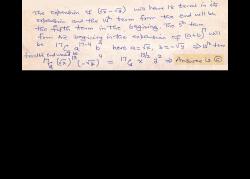 The expansion of (√x - √y) will have 18 terms in its
expansion and the 14th term from the end will be
the fifth term in the begining. The 5th term
from the begining in the expansion of (a+b)^17 will
be 17C4 a^17-4 b^4 here a = √x, b = -√y ⇒ 14th term
from the end would be
17C4 (√x)^13 (-√y)^4 = 17C4 x^13/2 y^2 ⇒ Answer is C